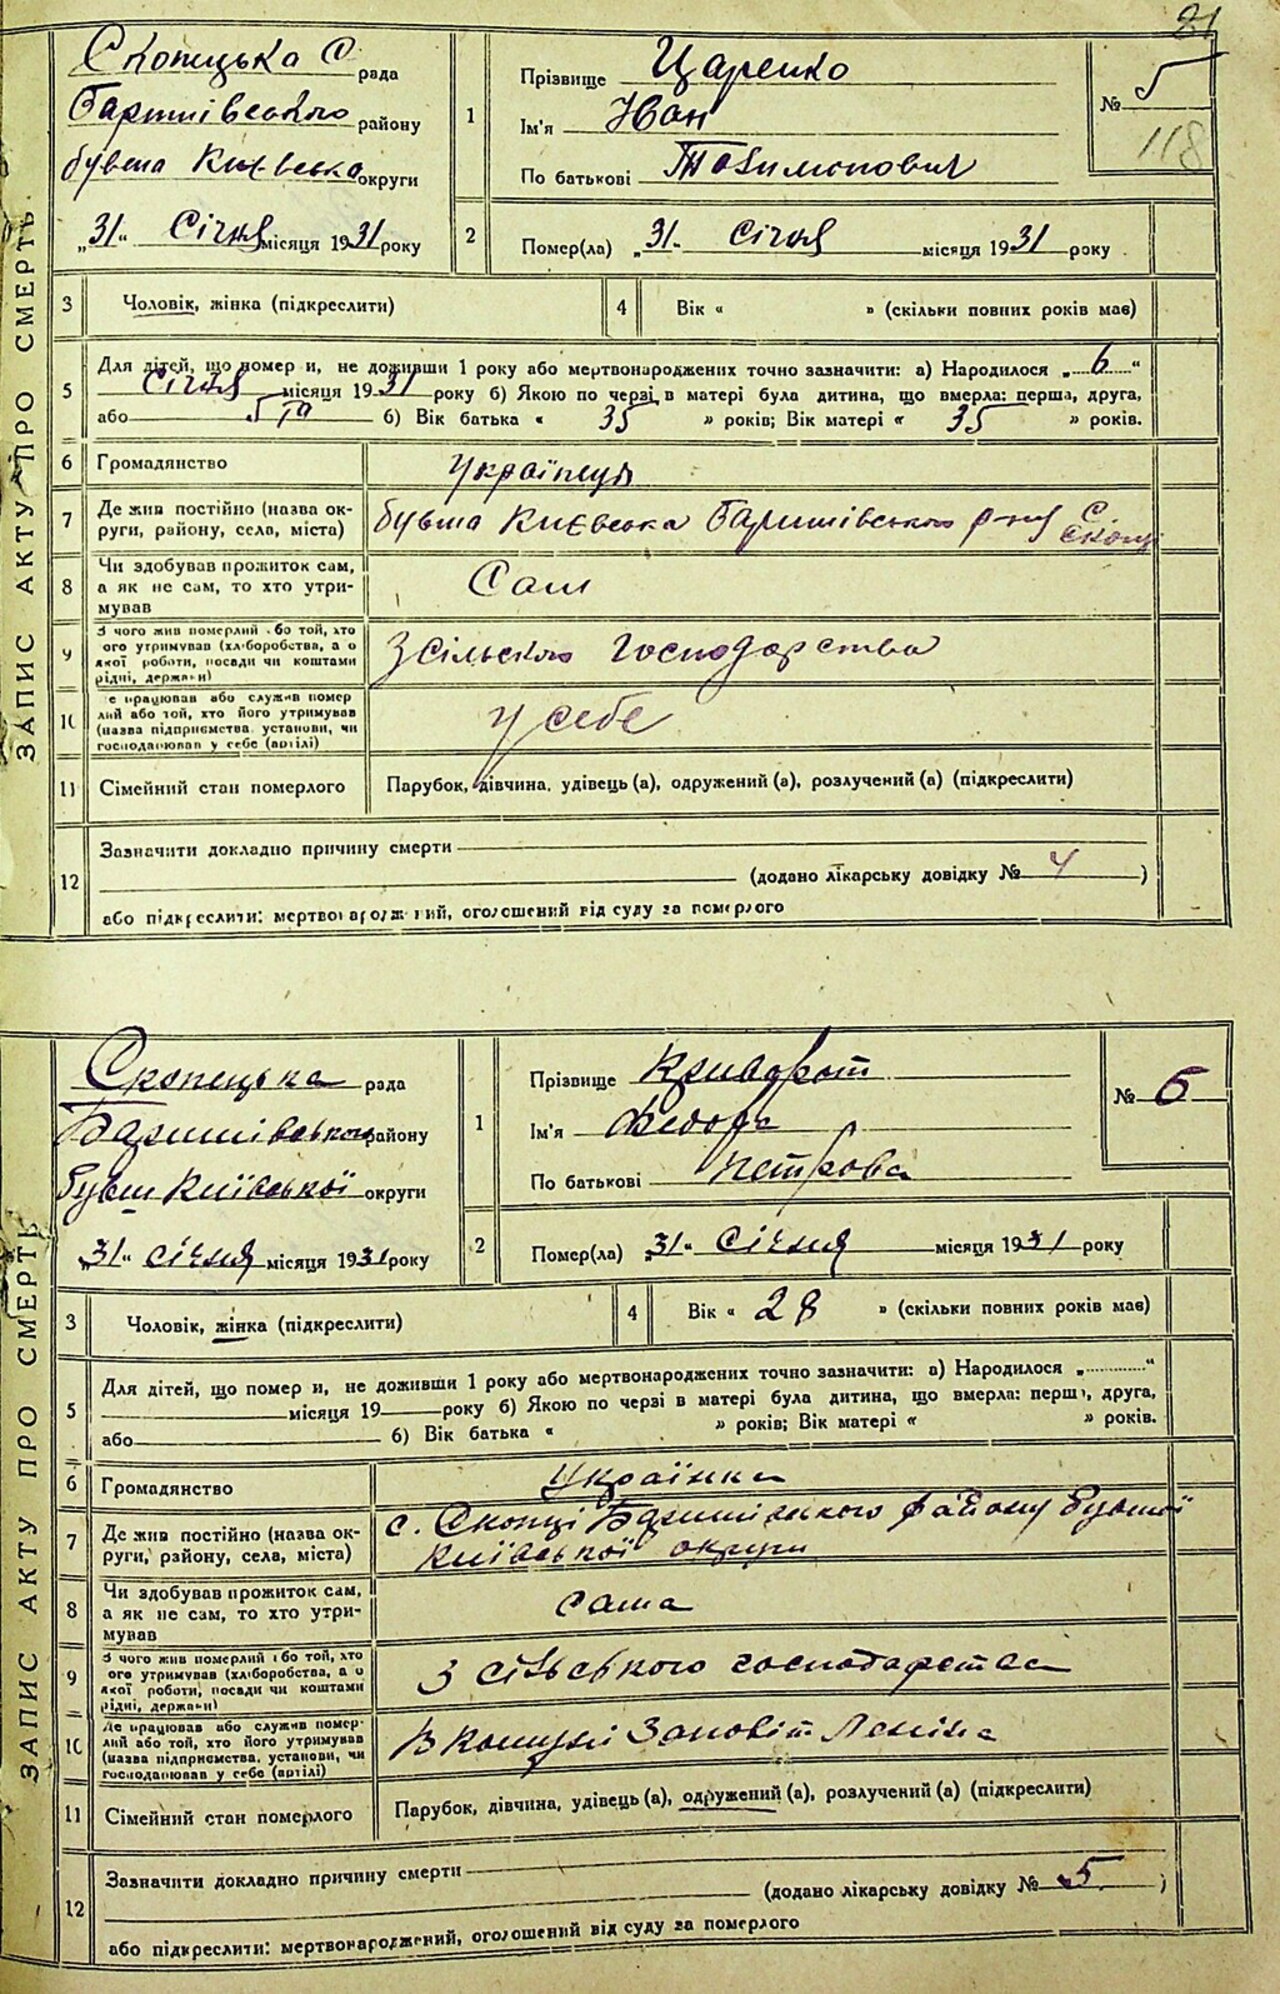 21
ЗАПИС АКТУ ПРО СМЕРТЬ.
Скопецька С рада
Баришівського району
бувша Києвська округи
„31“ Січня місяця 1931 року
1
Прізвище Царенко
Ім'я Іван
По батькові
№ 5
118
2
Помер(ла) „31“ Січня місяця 1931 року
3 Чоловік, жінка (підкреслити)
4 Вік « » (скільки повних років має)
5
Для дітей, що помер и, не доживши 1 року або мертвонароджених точно зазначити: а) Народилося „6“
Січня місяця 1931 року б) Якою по черзі в матері була дитина, що вмерла: перша, друга,
або 5та б) Вік батька « 35 » років; Вік матері « 35 » років.
6 Громадянство Українець
7 Де жив постійно (назва ок-
руги, району, села, міста)
бувша Києвська Баришівського р-ну С.
Скопці
8 Чи здобував прожиток сам,
а як не сам, то хто утри-
мував
Сам
9 З чого жив померлий або той, хто
ого утримував (хліборобства, а о
якої роботи, посади чи коштами
рідні, держави)
З сільского господарства
10 е працював або служив помер
лий або той, хто його утримував
(назва підприємства, установи, чи
господарював у себе (артілі)
у себе
11 Сімейний стан померлого Парубок, дівчина, удівець (а), одружений (а), розлучений (а) (підкреслити)
12 Зазначити докладно причину смерти
(додано лікарську довідку № 4 )
або підкреслити: мертвонароджений, оголошений від суду за померлого
ЗАПИС АКТУ ПРО СМЕРТЬ
Скопецька рада
Баришівського району
бувш Київської округи
„31“ січня місяця 1931 року
1
Прізвище Криворот
Ім'я Федора
По батькові Петрова
№ 6
2
Помер(ла) „31“ Січня місяця 1931 року
3 Чоловік, жінка (підкреслити)
4 Вік « 28 » (скільки повних років має)
5
Для дітей, що помер и, не доживши 1 року або мертвонароджених точно зазначити: а) Народилося „ “
місяця 19 року б) Якою по черзі в матері була дитина, що вмерла: перша, друга,
або б) Вік батька « » років; Вік матері « » років.
6 Громадянство Українка
7 Де жив постійно (назва ок-
руги, району, села, міста)
с. Скопці Баришівського району бувшої
Київської округи
8 Чи здобував прожиток сам,
а як не сам, то хто утри-
мував
сама
9 З чого жив померлий або той, хто
ого утримував (хліборобства, а о
якої роботи, посади чи коштами
рідні, держави)
З сільського господарства
10 Де працював або служив помер-
лий або той, хто його утримував
(назва підприємства, установи, чи
господарював у себе (артілі)
В Комуні Заповіт Леніна
11 Сімейний стан померлого Парубок, дівчина, удівець (а), одружений (а), розлучений (а) (підкреслити)
12 Зазначити докладно причину смерти
(додано лікарську довідку № 5 )
або підкреслити: мертвонароджений, оголошений від суду за померлого